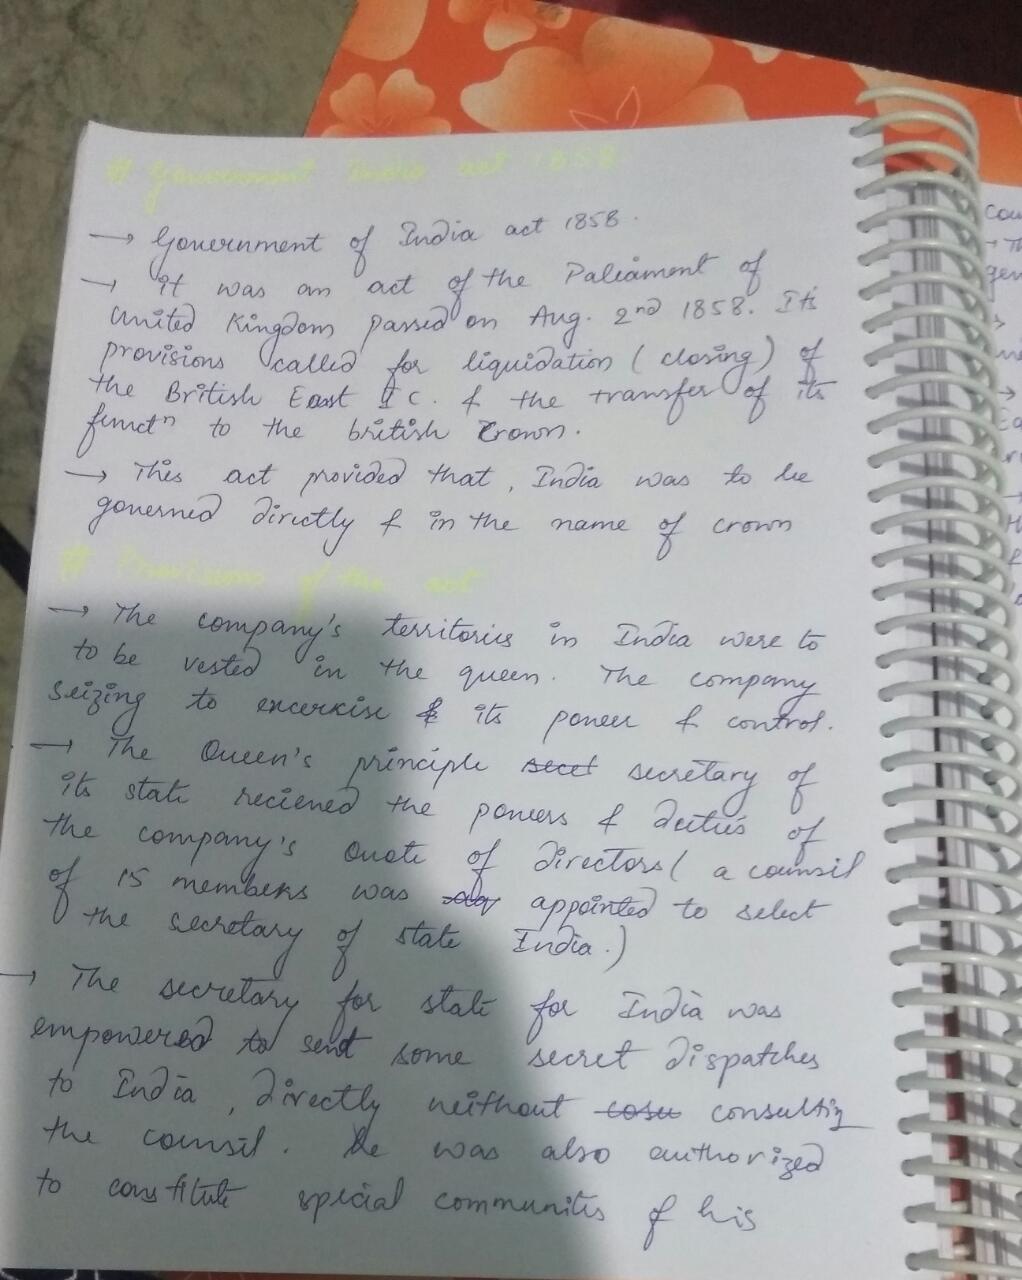 # Government India act 1858
→ Government of India act 1858.
→ it was an act of the Paliament of
United Kingdom passed on Aug. 2nd 1858. Its
provisions called for liquidation (closing) of
the British East I C. & the transfer of its
functn to the british Crown.
→ This act provided that, India was to be
governed directly & in the name of crown
# Provisions of the act
→ The company's territories in India were to
to be vested in the queen. The company
seizing to excercise its power & control.
→ The Queen's principle secretary of
its state recieved the powers & duties of
the company's Quote of directors (a counsil
of 15 members was appointed to select
the secretary of state India.)
→ The secretary for state for India was
empowered to send some secret dispatches
to India, directly without consulting
the counsil. He was also authorized
to constitute special communities of his